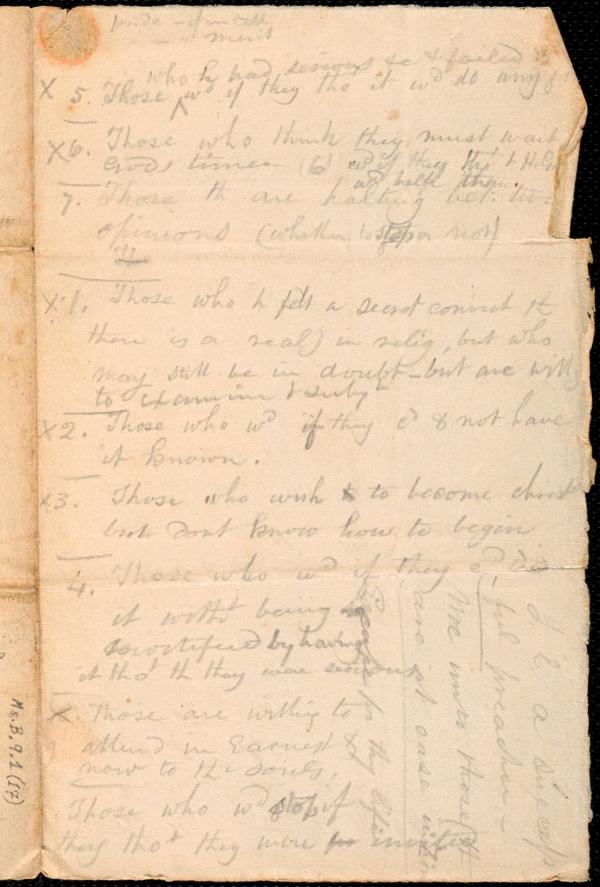 pride - 
- - merit
who h had serious &c & failed
X 5. Those ^ wd if they tho it wd do any
X6. Those who think they must wait
Gods time (6) wd if they tho t H.G.
wd help them.
7. Those th are halting bet. two
opinions (whether to stop or not)
X 1. Those who h felt a secret convict th
there is a real) in relig, but who
may still be in doubt - but are will
to examine & subt
X2. Those who wd if they cd & not have
it known.
X3. Those who wish to to become christ
but dont know how to begin
4. Those who wd if they cd do
it witht being
mortified by having
it tho' th they were serious
X. Those are willing to
attend in Earnest
now to th souls,
Those who wd stop if
they thot they were invited
J. C. a success
ful preacher -
Woe unto those th
are at ease in
Escape for thy life
Ms.B.9.1 (17)